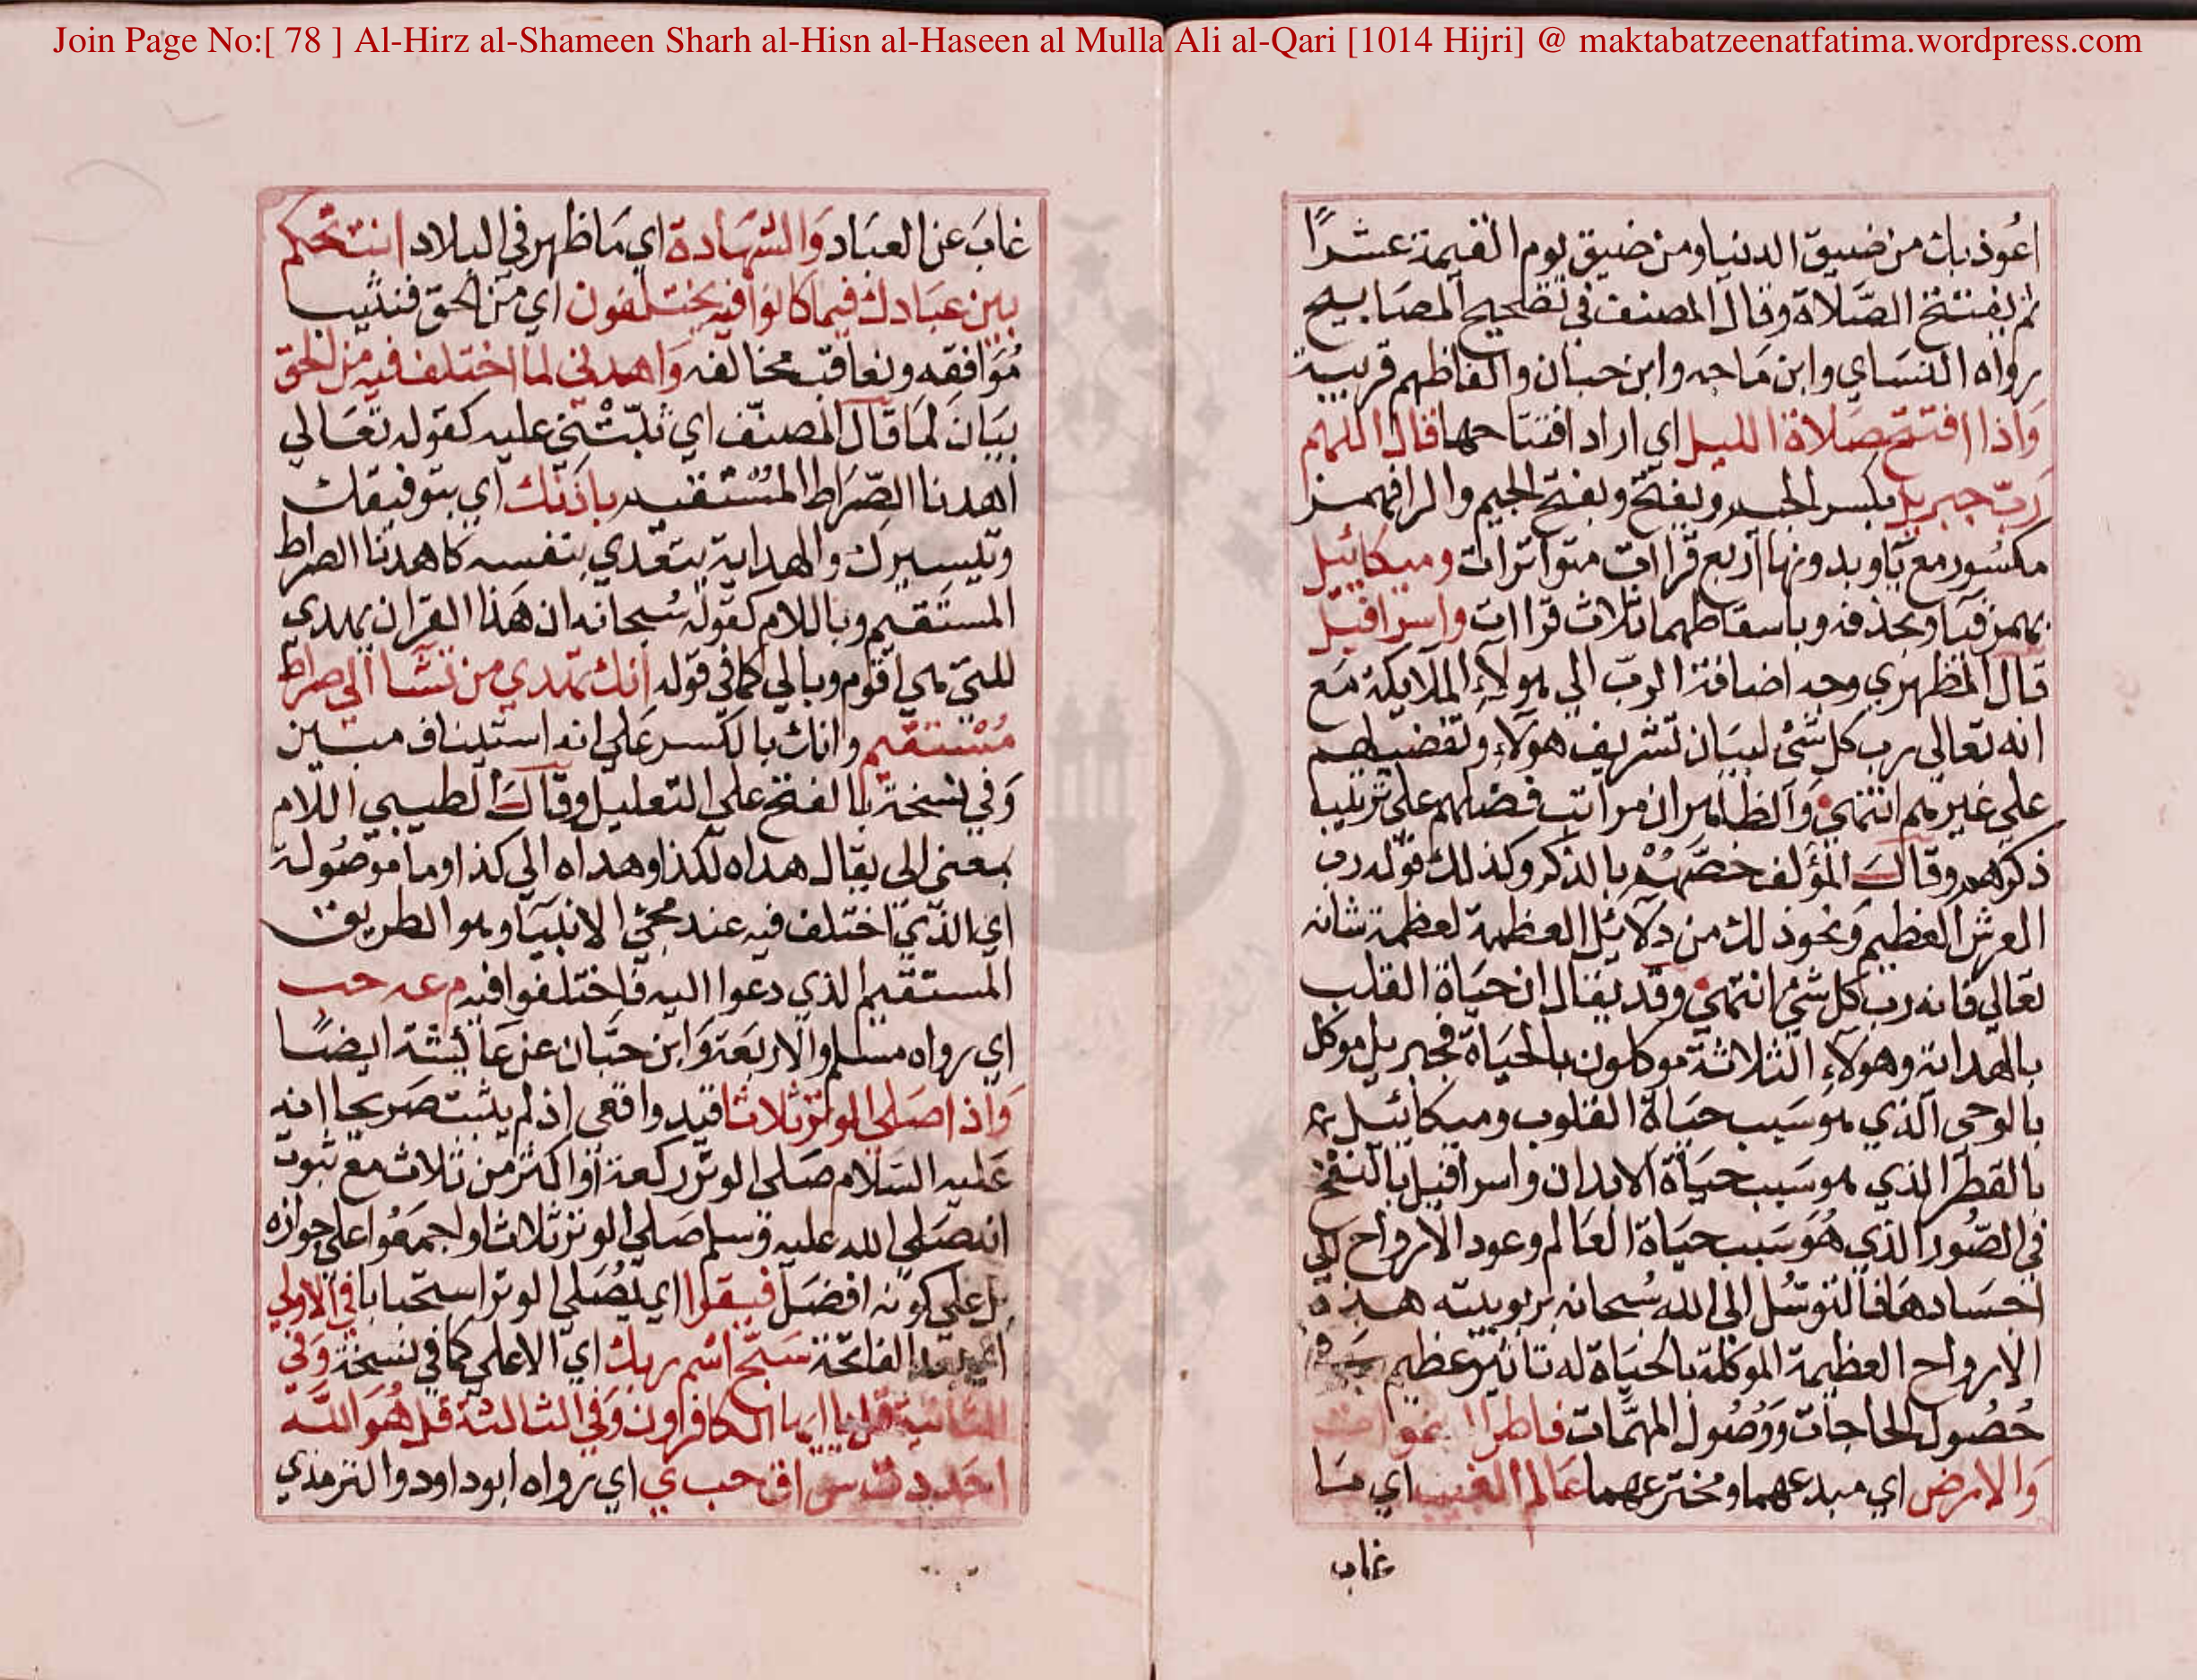 Join Page No:[ 78 ] Al-Hirz al-Shameen Sharh al-Hisn al-Haseen al Mulla Ali al-Qari [1014 Hijri] @ maktabatzeenatfatima.wordpress.com
اعُوذ بك من ضيق الدنيا ومن ضيق يوم القيمة عشرًا
ثم يفتتح الصَّلاة وقال المصنف في تصحيح المصَابيح
رواه النسَاي وابن مَاجه وابن حبان والفاظهم قريبة
وَاذا افتتح صَلاة الليل اي اراد افتتاحها قال اللهم
رَبّ جبريل بكسر الجيم وبفتح وبفتح الجيم والرا فهمز
مكسُور مع يا وبدونها اربع قراات متواترات وميكائيل
بهمز فيا وبحذفه وباسقاطهما ثلاث قراات واسرافيل
قال المظهري وجه اضافة الربّ الي هولاءِ الملايكة مَع
انه تعالي رب كل شئ لبيَان تشريف هولاءِ وتفضيلهم
علي غيرهم انتهي وَالظاهر ان مراتب فضلهم علي ترتيب
ذكرهم وقال المؤلف خصَّهُمْ بالذكر وكذلك قوله رب
العرش العظيم وَنحوذلك من دَلائل العظمة لعظمة شانه
تعالي فانه رب كل شئ انتهي وقد يقال ان حيَاة القلب
بالهداية وهولاءِ الثلاثة موكلون بالحيَاة فجبريل موكل
بالوحي الذي هو سَبب حيَاة القلوب وميكائيل
بالقطر الذي هو سَبب حيَاة الابدان واسرافيل بالنفخ
في الصُّور الذي هُوَ سَبب حيَاة العَالم وعود الارواح الي
اجسَادهَا فالتوسُّل الي الله سُبحانه بربوبيته هذه
الارواح العظيمة الموكلة بالحيَاة له تاثير عظيم في
حُصُول الحاجات وَوُصُول المهمَّات فاطر السموات
وَالارض اي مبدعهما ومخترعهما عَالم الغيب اي مَا
غاب
غابَ عن العبَاد وَالشهَادة اي مَا ظهر في البلاد انت تحكم
بين عبَادك فيما كانوا فيه يختلفون اي من الحق فنثيب
مُوَافقه ونعاقب مخالفه وَاهدني لما اختلف فيه من الحق
بيَان لمَا قال المصنّف اي ثبّتني عليه كقوله تعَالي
اهدنا الصّرَاط المسْتقيم باذنك اي بتوفيقك
وتيسيرك والهداية يتعَدي بنفسه كاهدنا الصراط
المستقيم وباللام كقوله سُبحانه ان هَذا القران يهدي
للتي هي اقوم وبالي كما في قوله انك تهدي من تشا الي صراط
مُسْتقيم وانك بالكسر عَلي انه استيناف مبين
وَفي نسخة بالفتح علي التعليل وقال الطيبي اللام
بمعنى الى يقال هداه لكذا وهداه الى كذا وما موصُولة
اي الذي اختلف فيه عند مجئ الانبيَا وهو الطريق
المستقيم الذي دعوا اليه فاختلفوا فيه م عه حب
اي رواه مسلم والاربعَة وَابن حبّان عن عَائشة ايضًا
وَاذا صَلي الوتر ثلاثا قيد واقعي اذ لم يثبت صَريحا انه
عَليه السَلام صَلي الوتر ركعة اوْ اكثر من ثلاث مع ثبوت
انه صَلي الله عليه وسلم صَلي الوتر ثلاثا واجمعُوا علي جوازه
بل علي كونه افضل فيقرا اي يُصَلي الوتر استحبابا في الاولي
الفاتحة سَبّح اسْم ربك اي الاعلي كما في نسخة وَفي
الثانية قل يا ايها الكافرون وَفي الثالثة قل هُوَ اللّه
احَد د ت س ق حب ي اي رواه ابوداود والترمذي